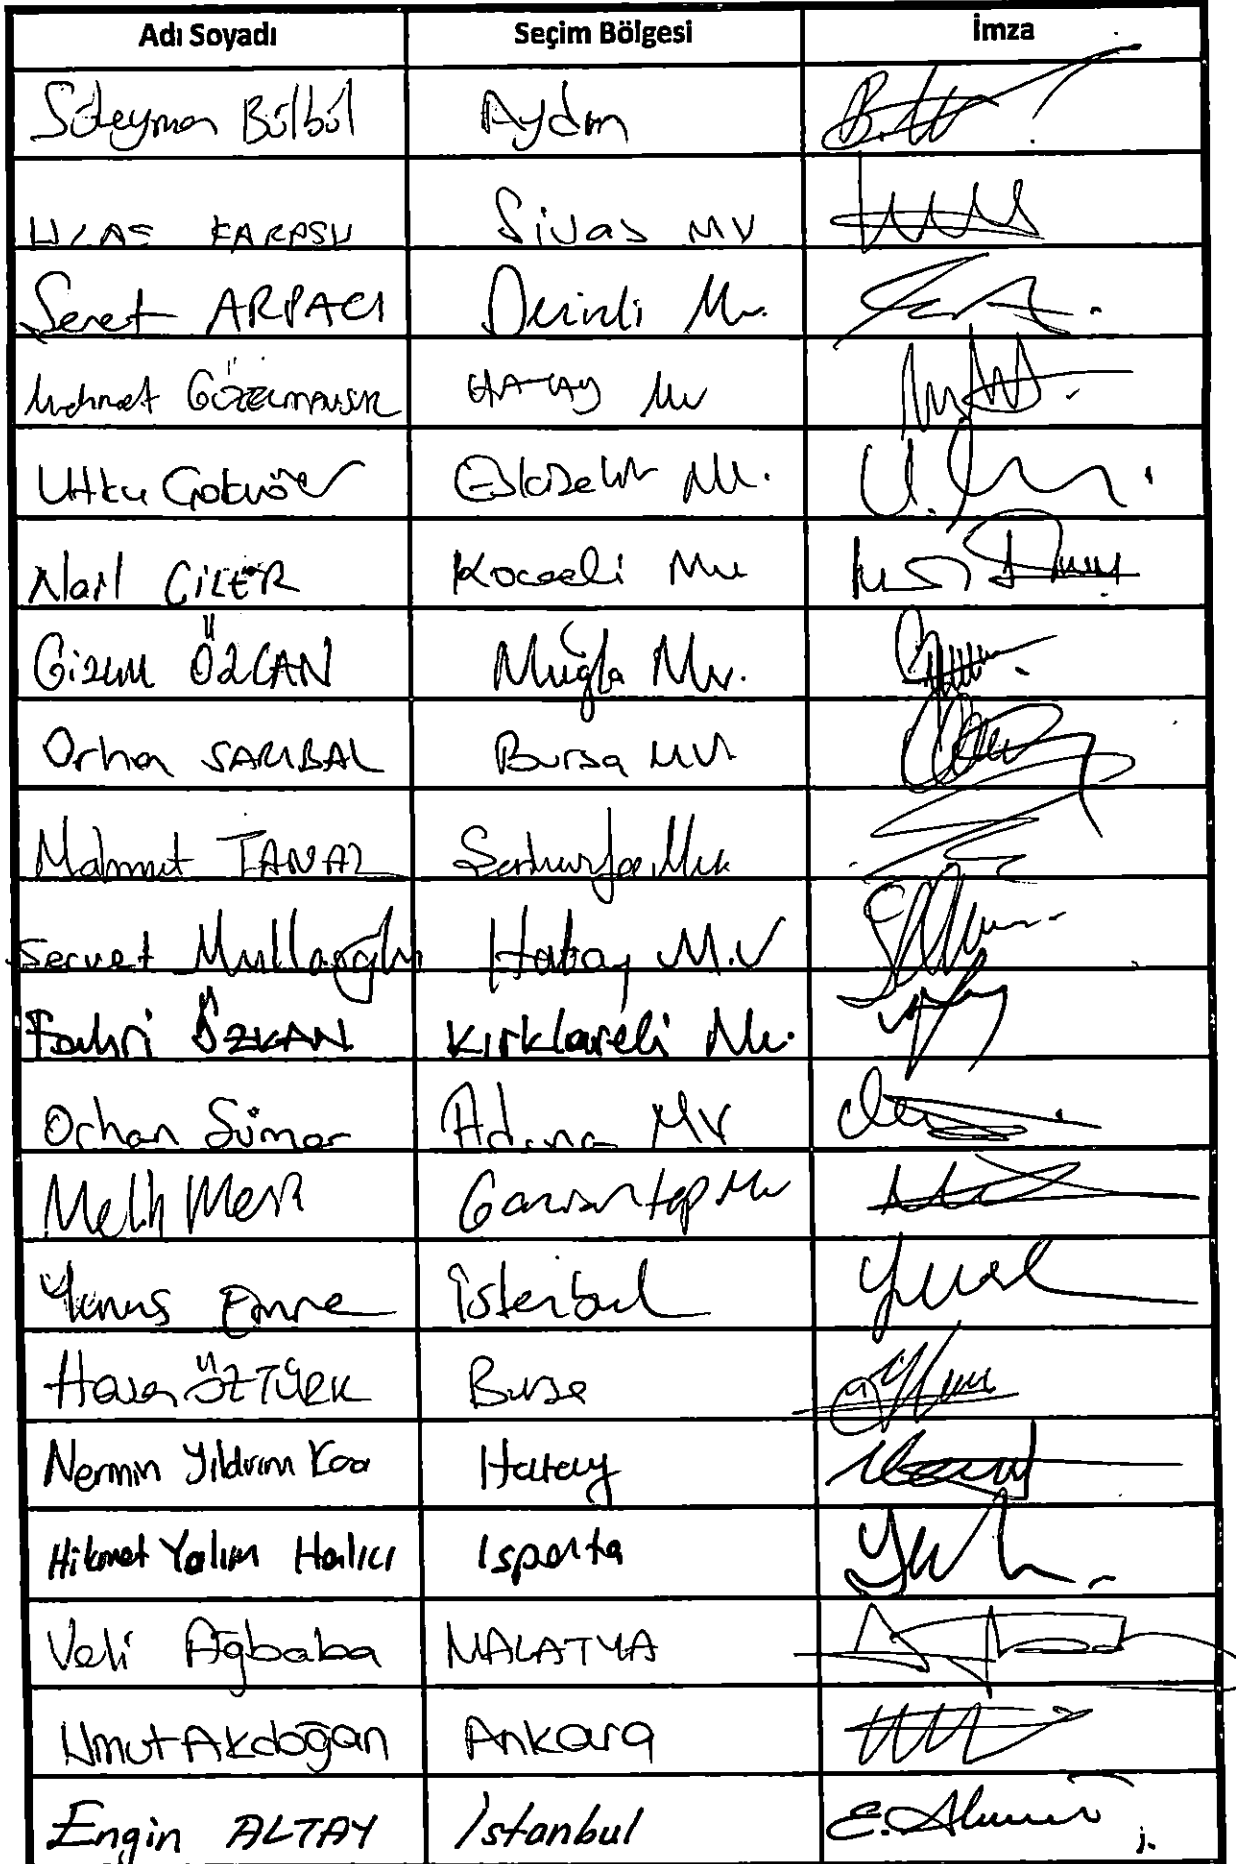 Adı Soyadı Seçim Bölgesi İmza
Süleyman Bülbül Aydın
ULAŞ KARASU Sivas MV
Şeref ARPACI Denizli Mv.
Mehmet GÜZELMANSUR HATAY Mv
Utku Çakırözer Eskişehir Mv.
Nail ÇİLER Kocaeli Mv
Gizem ÖZCAN Muğla Mv.
Orhan SARIBAL Bursa MV
Mahmut TANAL Şanlıurfa Mv
Servet Mullaoğlu Hatay M.V
Fahri ÖZKAN Kırklareli Mv.
Orhan Sümer Adana MV
Melih Meriç Gaziantep Mv
Yunus Emre İstanbul
Hasan ÖZTÜRK Bursa
Nermin Yıldırım Kara Hatay
Hikmet Yalım Halıcı Isparta
Veli Ağbaba MALATYA
Umut Akdoğan Ankara
Engin ALTAY İstanbul